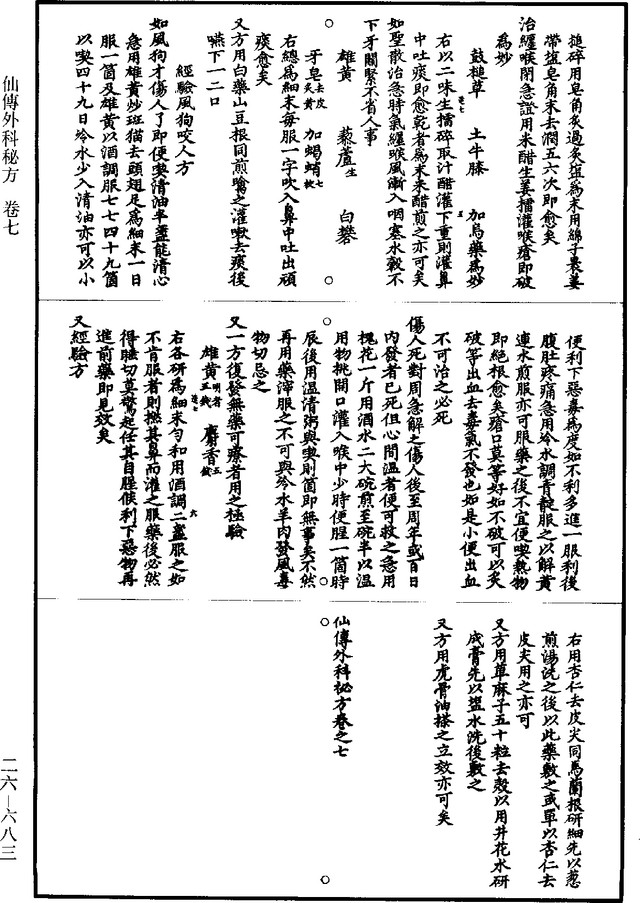 搥碎用皂角炙過炙塩為末用綿子裹姜
帶塩皂角末去潤五六次即愈矣
治纏喉閉急證用米醋生姜擂灌喉瘡即破
為妙
鼓槌草 土牛膝 加烏藥為妙
右以二味生擂碎取汁醋灌下重則灌鼻
中吐痰即愈乾者為末米醋煎之亦可矣
如聖散治急時氣纏喉風漸入咽塞水穀不
下牙關緊不省人事
雄黃 藜蘆生 白礬
牙皂去皮炙黃 加蝎蛸七枚
右總為細末每服一字吹入鼻中吐出頑
痰愈矣
又方用白藥山豆根同煎噙之灌嗽去痰後
嚥下一二口
經驗風狗咬人方
如風狗才傷人了即便喫清油半盞能清心
急用雄黃炒班猫去頭翅足為細末一日
服一箇及雄黃以酒調服七七四十九箇
以喫四十九日冷水少入清油亦可以小
便利下惡毒為度如不利多進一服利後
腹肚疼痛急用冷水調青靛服之以解黃
連水煎服亦可服藥之後不宜便喫熱物
即絕根愈矣瘡口莫等好如不破可以矣
破等出血去毒氣不發也如是小便出血
不可治之必死
傷人死對周急解之傷人後至周年或百日
內發者已死但心間溫者便可救之急用
槐花一斤用酒水二大碗煎至碗半以溫
用物挑開口灌入喉中少時便醒一箇時
辰後用溫清粥與喫則箇即無事矣不然
再用藥滓服之不可與冷水羊肉發風毒
物切忌之
又一方復發無藥可療者用之極驗
雄黃明者五錢 麝香五錢
右各研為細末勻和用酒調二盞服之如
不肯服者則撚其鼻而灌之服藥後必然
得睡切莫驚起任其自醒候利下惡物再
進前藥即見效矣
又經驗方
右用杏仁去皮尖同馬蘭根研細先以葱
煎湯洗之後以此藥敷之或單以杏仁去
皮尖用之亦可
又方用草麻子五十粒去殼以用井花水研
成膏先以塩水洗後敷之
又方用虎骨油搽之立效亦可矣
仙傳外科秘方卷之七
仙傳外科秘方 卷七
二六—六八三